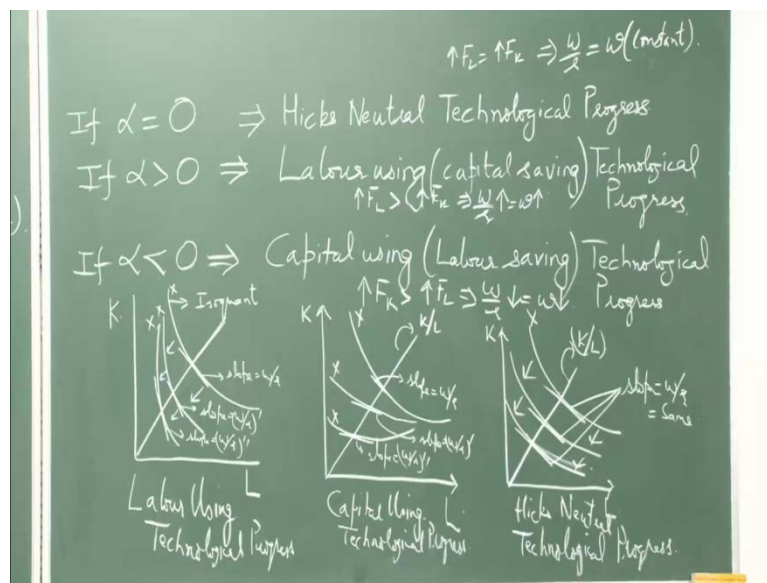 ↑F_L = ↑F_K ⇒ w/r = ω (constant).
If α = 0 ⇒ Hicks Neutral Technological Progress
If α > 0 ⇒ Labour using (capital saving) Technological Progress
↑F_L > ↑F_K ⇒ w/r ↑ = ω↑
If α < 0 ⇒ Capital using (Labour saving) Technological Progress
↑F_K > ↑F_L ⇒ w/r ↓ = ω↓
K
x
x
x
Isoquant
slope = w/r
slope = (w/r)'
slope = (w/r)''
L
Labour Using
Technological Progress
K
x
x
x
K/L
slope = w/r
slope = (w/r)'
slope = (w/r)''
L
Capital Using
Technological Progress
K
x
(K/L)
slope = w/r
= Same
L
Hicks Neutral
Technological Progress.